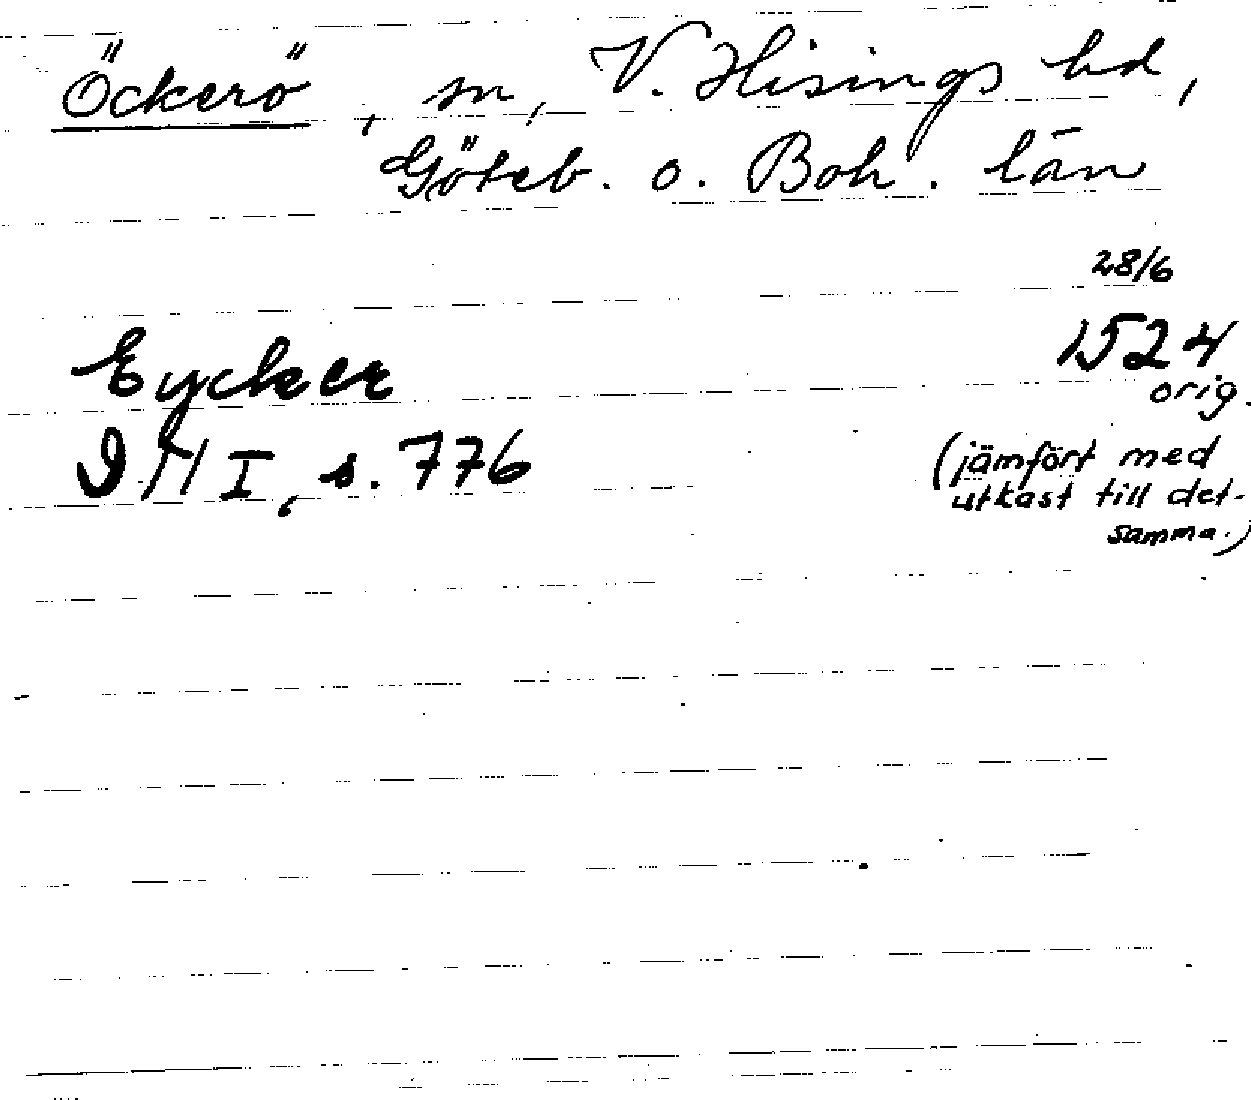 Öckerö, sn, V. Hisings hd,
Göteb. o. Boh. län
28/6
Eycker 1524
orig.
I, s. 776 (jämfört med
utkast till det-
samma.)